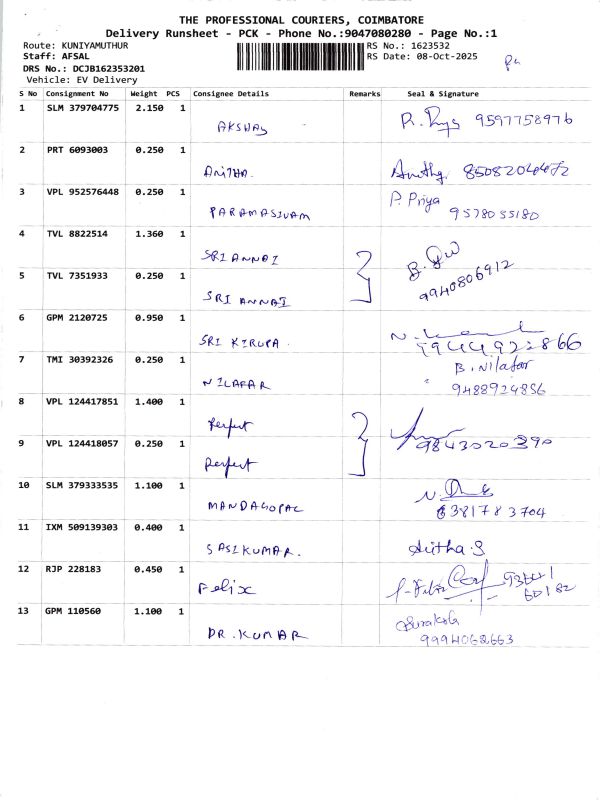 THE PROFESSIONAL COURIERS, COIMBATORE
Delivery Runsheet - PCK - Phone No.:9047080280 - Page No.:1
Route: KUNIYAMUTHUR RS No.: 1623532
Staff: AFSAL RS Date: 08-Oct-2025
DRS No.: DCJB162353201
Vehicle: EV Delivery
S No Consignment No Weight PCS Consignee Details Remarks Seal & Signature
1 SLM 379704775 2.150 1
AKSHAY 9597758976
2 PRT 6093003 0.250 1
ANITHA. 8508204472
3 VPL 952576448 0.250 1
PARAMASIVAM P. Priya
9578055180
4 TVL 8822514 1.360 1
SRI ANNAI
5 TVL 7351933 0.250 1
SRI ANNAI 9940806912
6 GPM 2120725 0.950 1
SRI KIRUPA. 9944922866
7 TMI 30392326 0.250 1
NILAFAR B. Nilafar
9488924856
8 VPL 124417851 1.400 1
Perfect
9 VPL 124418057 0.250 1
Perfect 9843020390
10 SLM 379333535 1.100 1
MANDAGOPAL 6381783704
11 IXM 509139303 0.400 1
SASIKUMAR.
12 RJP 228183 0.450 1
Felix
13 GPM 110560 1.100 1
DR. KUMAR 9994062663